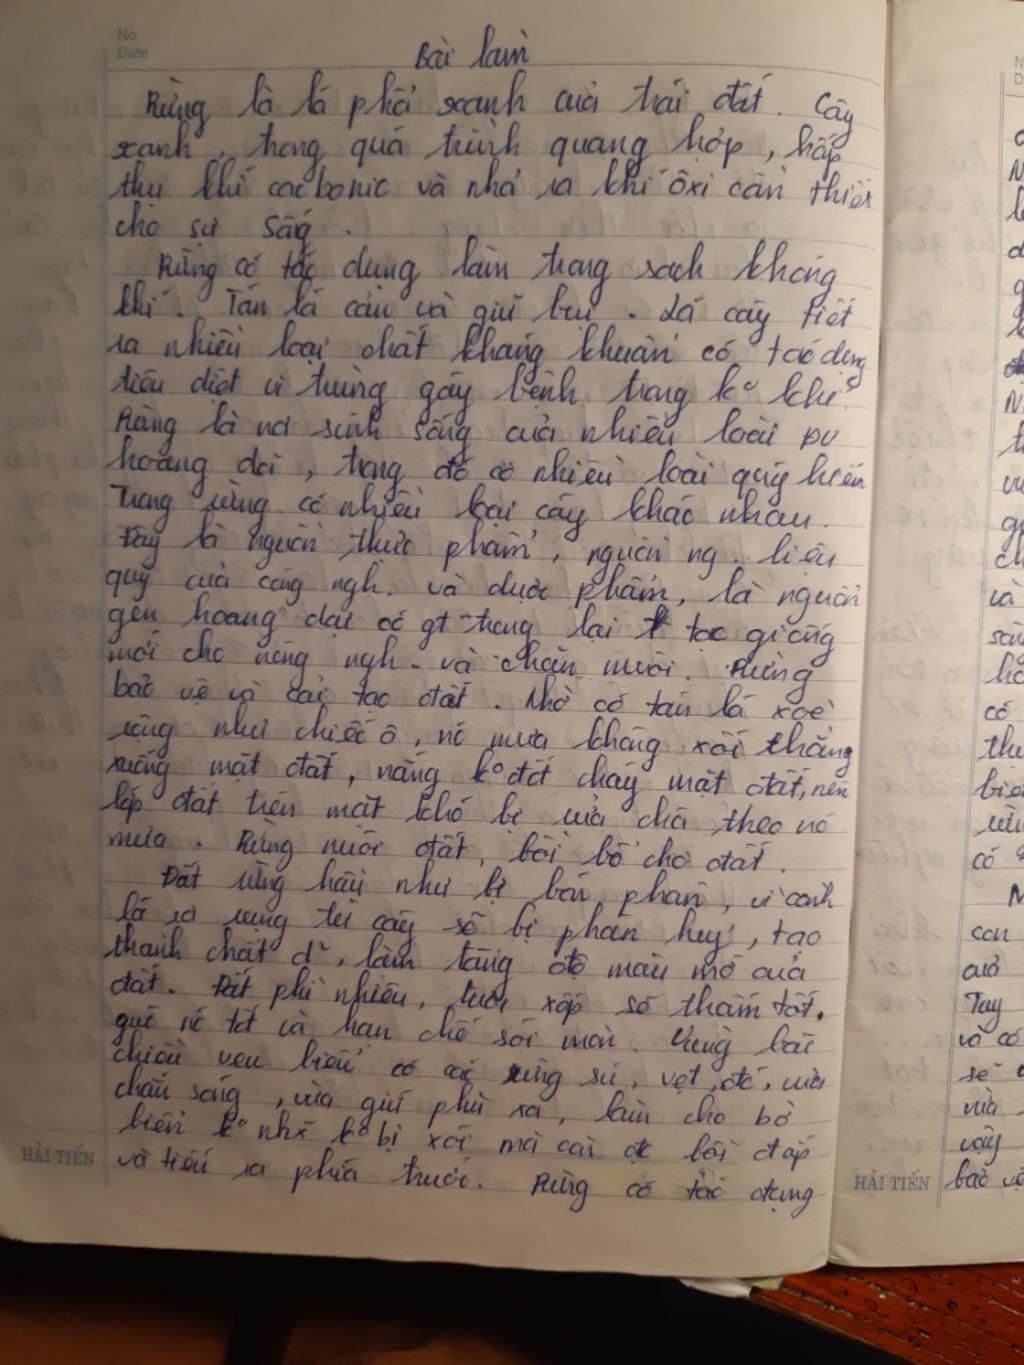 No
Date
Bài làm
Rừng là lá phổi xanh của trái đất. Cây
xanh, trong quá trình quang hợp, hấp
thụ khí cacbonic và nhả ra khí ôxi cần thiết
cho sự sống.
Rừng có tác dụng làm trong sạch không
khí. Tán lá cản và giữ bụi. Lá cây tiết
ra nhiều loại chất kháng khuẩn có tác dụng
tiêu diệt vi trùng gây bệnh trong k° khí.
Rừng là nơi sinh sống của nhiều loài ĐV
hoang dại, trong đó có nhiều loài quý hiếm
Trong rừng có nhiều loại cây khác nhau.
Đây là nguồn thực phẩm, nguồn ng. liệu
quý của công ngh. và dược phẩm, là nguồn
gen hoang dại có gt trong lại tạo giống
mới cho nông ngh. và chăn nuôi. Rừng
bảo vệ và cải tạo đất. Nhờ có tán lá xoè
rộng như chiếc ô, nc mưa không xối thẳng
xuống mặt đất, nắng k° đốt cháy mặt đất, nên
lớp đất trên mặt khó bị rửa trôi theo nc
mưa. Rừng nuôi đất, bồi bổ cho đất.
Đất rừng hầu như bị bón phân, vì cành
lá rơi rụng từ cây sẽ bị phân huỷ, tạo
thành chất d², làm tăng độ màu mỡ của
đất. Đất phì nhiêu, tươi xốp sẽ thấm tốt,
giữ nc tốt và hạn chế sói mòn. Vùng bãi
chiều ven biển có các rừng sú, vẹt, đc, vừa
chắn sóng, vừa giữ phù xa, làm cho bờ
biển k° k° bị xói mà còn đc bồi đắp
và tiến ra phía trước. Rừng có tác dụng
HẢI TIẾN
HẢI TIẾN